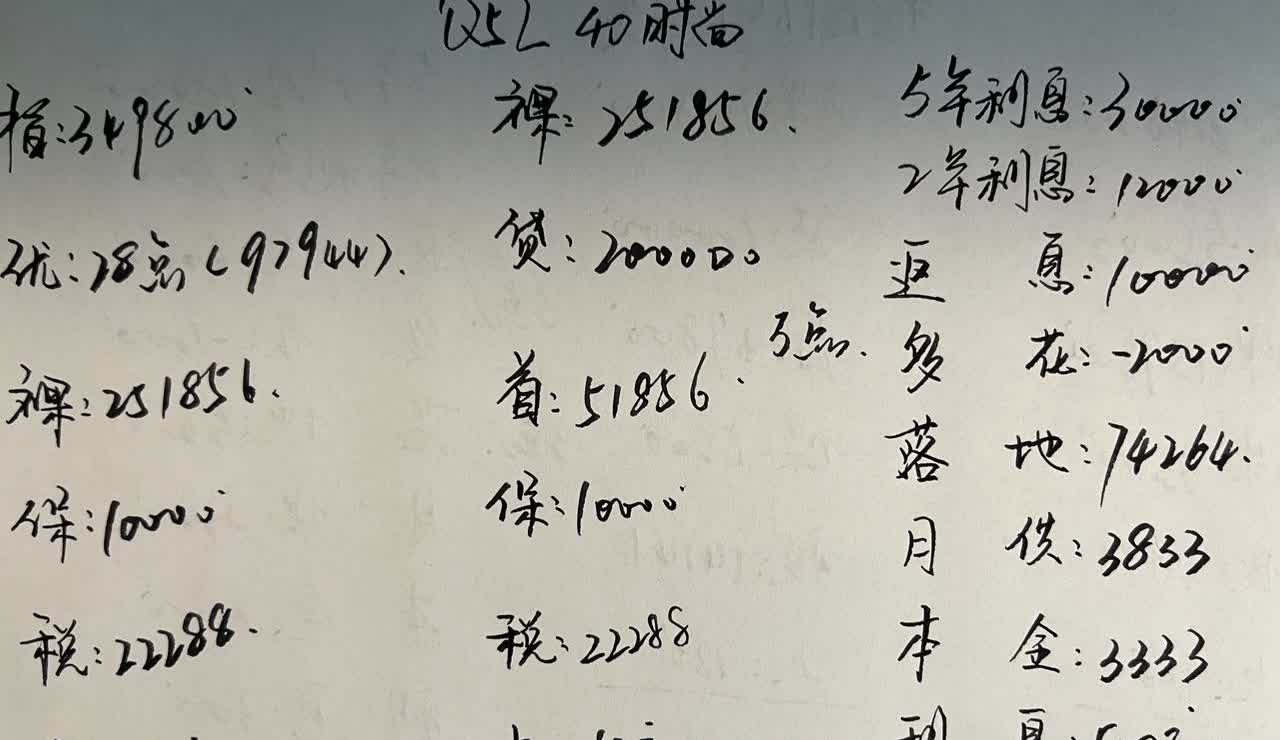 Q5L 40时尚
指:349800
优:28点(97944).
裸:251856.
保:10000
税:22288.
裸:251856.
贷:200000
首:51856.
保:10000
税:22288
5点.
5年利息:30000
2年利息:12000
返息:10000
多花:-2000
落地:74264.
月供:3833
本金:3333
利息:500